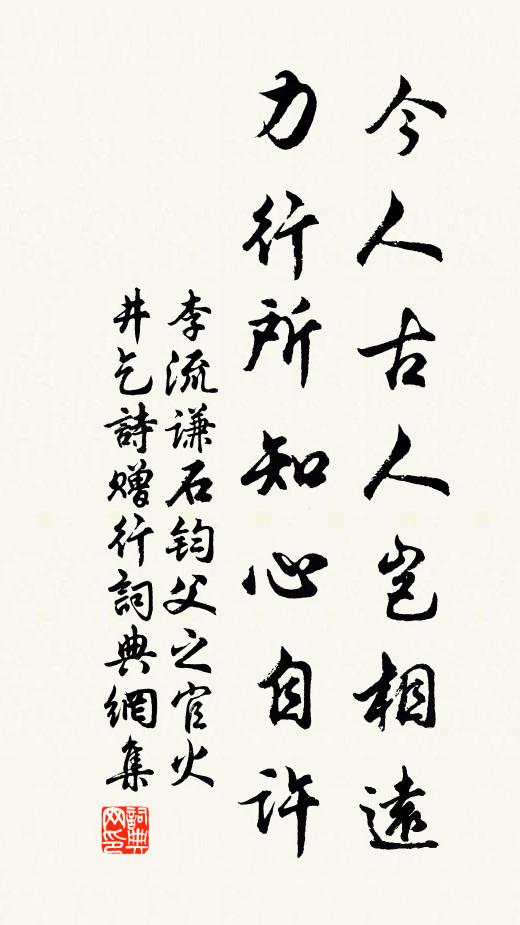 今人古人岂相遠
力行所知心自許
李流谦石鈞父之官火
井乞詩赠行詞典網集
詞典网印